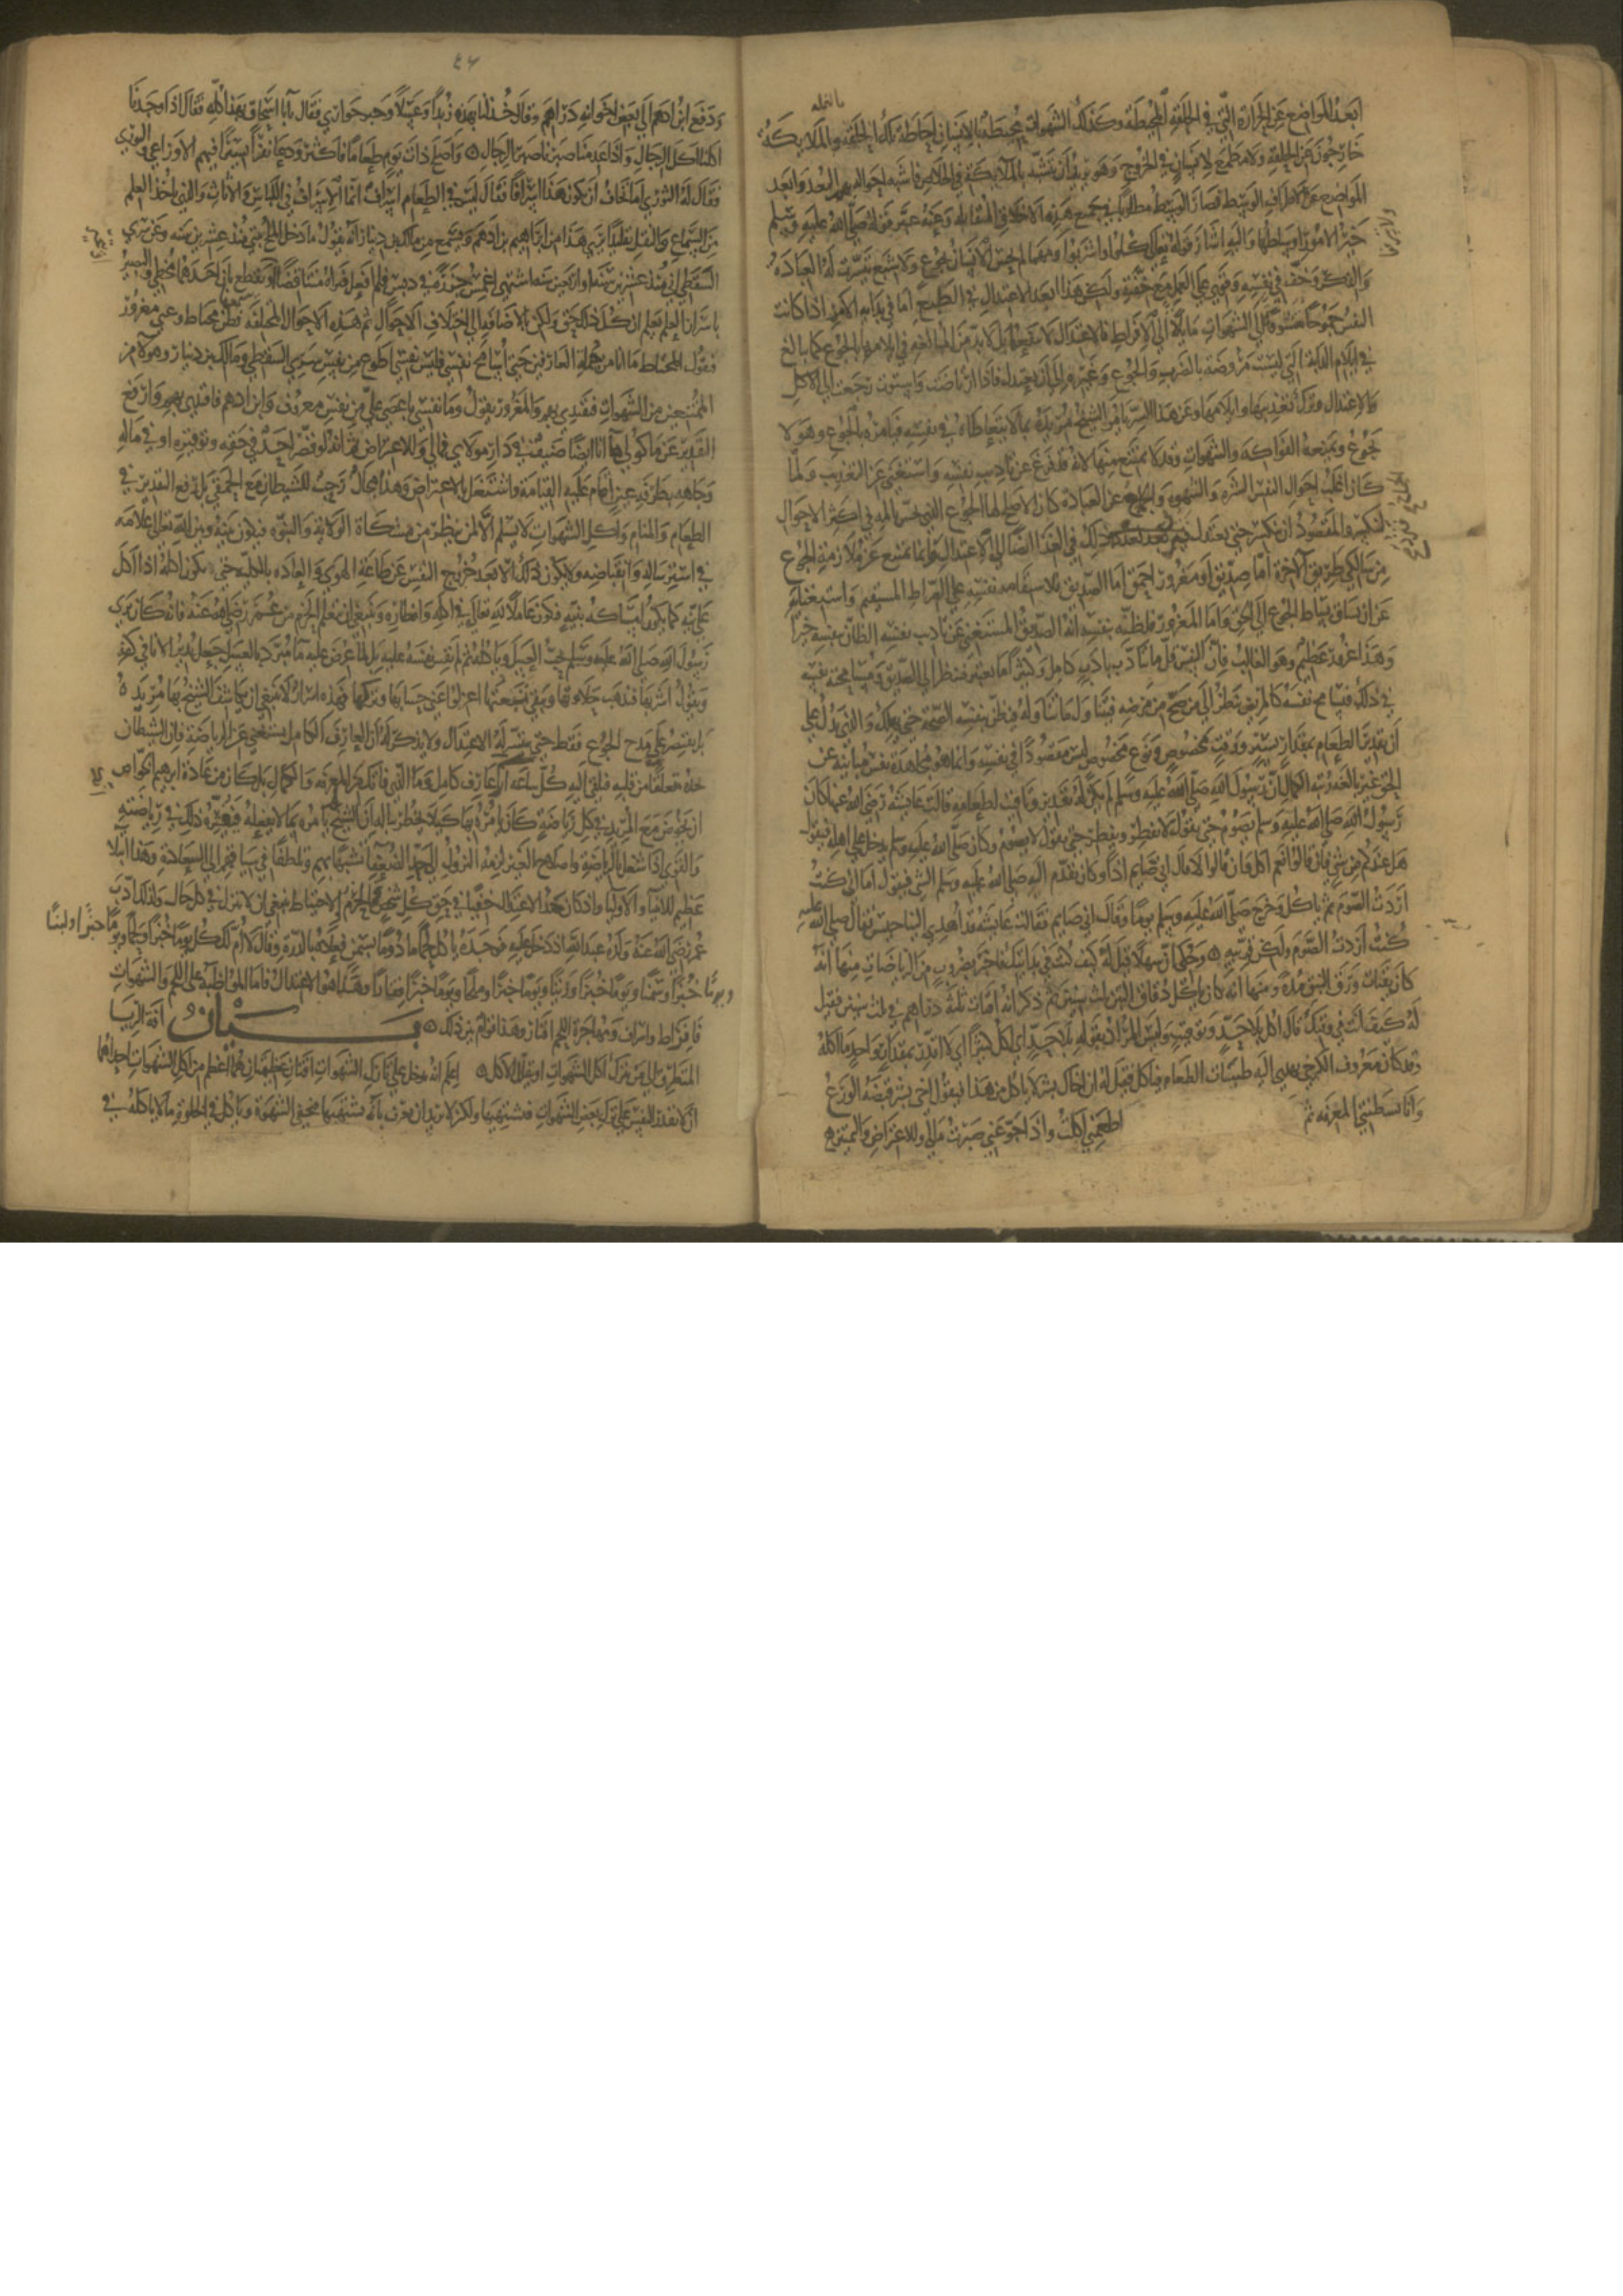 ابعد المواضع عن الحرارة التي في الحلقة المحيطة وكذلك الشهوات محيطة بالانسان احاطة تلك الحلقة والملايكة
خارجون عن الحلقة ولا مطمع للانسان في الخروج وهو يريد ان يتشبه بالملايكة في الخلاص فاشبه احواله بهم البعد وابعد
المواضع عن الاطراف الوسط فصار الوسط مطلوبا في جميع هذه الاخلاق المتقابلة وعنه عبر قوله صلى الله عليه وسلم
خير الامور اوساطها واليه اشار قوله تعالى كلوا واشربوا ومهما لم يحس الانسان بجوع ولا شبع تيسرت له العبادة
والفكر وخف في نفسه وقوي على العمل مع خفته ولكن هذا بعد الاعتدال في الطبع اما في بداية الامر اذا كانت
النفس جموحا متشوقة الى الشهوات مايلة الى الافراط فالاعتدال لا ينفعها بل لا بد من المبالغة في ايلامها بالجوع كما يبالغ
في ايلام الدابة التي ليست مروضة بالضرب والجوع وغيره الى ان تعتدل فاذا ارتاضت واستوت رجعت الى الاكل
والاعتدال وترك تعذيبها وايلامها وعن هذا السر يامر الشيخ مريده بما لا يتعاطاه في نفسه فيامره بالجوع وهو لا
يجوع ويمنعه الفواكه والشهوات وقد لا يمتنع منها لانه قد فرغ عن تاديب نفسه واستغنى عن التعذيب ولما
كان اغلب احوال النفس الشره والشهوة والجماح عن العبادة كان الاصلح لها الجوع الذي تحس بالمه في اكثر الاحوال
لتنكسر والمقصود ان تنكسر حتى تعتدل فترد بعد ذلك في الغذا ايضا الى الاعتدال وانما يمتنع عن ملازمة الجوع
من سالكي طريق الاخرة اما صديق او مغرور احمق اما الصديق فلاستقامة نفسه على الصراط المستقيم واستغنايه
عن ان يساق بسياط الجوع الى الحق واما المغرور فلظنه بنفسه انه الصديق المستغني عن تاديب نفسه الظان بنفسه خيرا
وهذا غرور عظيم وهو الغالب فان النفس قل ما تتادب تادبا كاملا وكثيرا ما تغتر فتنظر الى الصديق ومسامحته نفسه
في ذلك فيسامح نفسه كالمريض ينظر الى من صح من مرضه فيتناول ما يتناوله ويظن بنفسه الصحة حتى يهلك والذي يدل على
ان تقدير الطعام بمقدار يسير ووقت مخصوص ونوع مخصوص ليس مقصودا في نفسه وانما هو مجاهدة نفس متنائية عن
الحق غير بالغة رتبة الكمال ان رسول الله صلى الله عليه وسلم لم يكن له تقدير وتاقيت لطعامه قالت عايشة رضي الله عنها كان
رسول الله صلى الله عليه وسلم يصوم حتى نقول لا يفطر ويفطر حتى نقول لا يصوم وكان صلى الله عليه وسلم يدخل على اهله فيقول
هل عندكم من شي فان قالوا نعم اكل وان قالوا لا قال اني صايم اذا وكان يقدم اليه صلى الله عليه وسلم الشي فيقول اما اني كنت
اردت الصوم ثم ياكل وخرج صلى الله عليه وسلم يوما وقال اني صايم فقالت عايشة قد اهدي الينا حيس فقال صلى الله عليه
كنت اردت الصوم ولكن قربيه وحكي ان سهلا قيل له كيف كنت في بدايتك فاخبر بضروب من الرياضات منها انه
كان يقتات ورق النبق مدة ومنها انه كان ياكل دقاق التبن ثلث سنين ثم ذكر انه اقتات ثلثة دراهم في ثلث سنين فقيل
له كيف انت في وقتك قال اكل بلا حد وتوقيت وليس المراد بقوله بلا حد اي اكل كثيرا اي لا اقدر بمقدار واحد ما اكله
وقد كان معروف الكرخي يهدى اليه طيبات الطعام فياكل فقيل له ان اخاك بشر لا ياكل من هذا فيقول اخي بشر قبضه الورع
وانا بسطتني المعرفة ثم
اطعمني اكلت واذا جوعني صبرت مالي وللاعتراض والتميز
٤٦
ودفع ابن ادهم الى بعض اخوانه دراهم وقال خذ لنا بهذه زبدا وعسلا وخبز حواري فقال يا ابا اسحاق بهذا كله فقال اذا وجدنا
اكلنا اكل الرجال واذا عدمنا صبرنا صبر الرجال واصلح ذات يوم طعاما فاكثر ودعا نفرا يسيرا فيهم الاوزاعي والثوري
فقال له الثوري اما تخاف ان يكون هذا اسرافا فقال ليس في الطعام اسراف انما الاسراف في اللباس والاثاث والذي ياخذ العلم
من السماع والنقل تقليدا يرى هذا من ابراهيم بن ادهم ويسمع من مالك بن دينار انه يقول ما دخل الملح بيتي منذ عشرين سنة وعن سري
السقطي انه منذ اربعين سنة يشتهي ان يغمس جزرة في دبس فلم يفعل فيراه متناقضا او يقطع بان احدهما مخطي والبصير
باسرار العلم يعلم ان كل ذلك حق ولكن بالاضافة الى اختلاف الاحوال ثم هذه الاحوال المختلفة فطن محتاط وغبي مغرور
فيقول المحتاط ما انا من جملة العارفين حتى اسامح نفسي فليس نفسي اطوع من نفس سري السقطي ومالك بن دينار وهولا من
الممتنعين من الشهوات فيقتدي بهم والمغرور يقول وما نفسي باعصى علي من نفس معروف وابن ادهم فاقتدي بهم وارفع
التقدير عن ماكولي فانا ايضا ضيف في دار مولاي فمالي وللاعتراض ثم انه لو قصر احد في حقه وتوقيره او في ماله
وجاهه بطرفة عين اقام عليه القيامة واشتغل بالاعتراض وهذا مجال رحب للشيطان مع الحمقى بل رفع التقدير في
الطعام والمنام واكل الشهوات لا يسلم الا لمن ينظر من مشكاة الولاية والنبوة فيكون بينه وبين الله تعالى علامة
في استرساله وانقباضه ولا يكون ذلك الا بعد خروج النفس عن طاعة الهوى والعادة بالكلية حتى يكون اكله اذا اكل
على نية كما يكون امساكه بنية فيكون عاملا لله تعالى في اكله وافطاره وينبغي ان يتعلم الحزم من عمر رضي الله عنه فانه كان يرى
رسول الله صلى الله عليه وسلم يحب العسل وياكله ثم لم يقس نفسه عليه بل لما عرض عليه ما مبرد بالعسل جعل يدير الانا في كفه
ويقول اشربها فتذهب حلاوتها وتبقى تبعتها اعزلوا عني حسابها وتركها فهذه اسرار لا ينبغي ان يكاشف الشيخ بها مريده
بل يقتصر على مدح الجوع فقط حتى يتيسر له الاعتدال ولا يذكر له ان العارف الكامل يستغني عن الرياضة فان الشيطان
يجد متعلقا من قلبه فيلقي اليه كل ساعة انك عارف كامل وما الذي فاتك من المعرفة والكمال بل كان من عادة ابرهيم الخواص
ان يخوض مع المريد في كل رياضة كان يامره بها كيلا يخطر بباله ان الشيخ يامره بما لا يفعله فينفره ذلك في رياضته
والقوي اذا شغل بالرياضة واصلاح الغير لزمه النزول الى حد الضعفا تشبها بهم وتلطفا في سياقتهم الى السعادة وهذا ابتلا
عظيم للانبيا والاوليا واذا كان حد الاعتدال خفيا في حق كل شخص فالحزم والاحتياط ينبغي ان لا يترك في كل حال ولذلك ادب
عمر رضي الله عنه ولده عبد الله اذ دخل عليه فوجده ياكل لحما مادوما بسمن فعلاه بالدرة وقال لا ام لك كل يوما خبزا ولحما ويوما خبزا ولبنا
ويوما خبزا وسمنا ويوما خبزا وزيتا ويوما خبزا وملحا ويوما خبزا قفارا وهذا هو الاعتدال فاما المواظبة على اللحم والشهوات
فافراط واسراف ومهاجرة اللحم اقتار وهذا قوام بين ذلك بيان افة الريا
المتطرق الى من ترك اكل الشهوات او قلل الاكل اعلم انه يدخل على تارك الشهوات افتان عظيمتان هما اعظم من اكل الشهوات احداهما
ان لا تقدر النفس على ترك بعض الشهوات فتشتهيها ولكن لا يريد ان يعرف بانه يشتهيها فيخفي الشهوة وياكل في الخلوة ما لا ياكله في